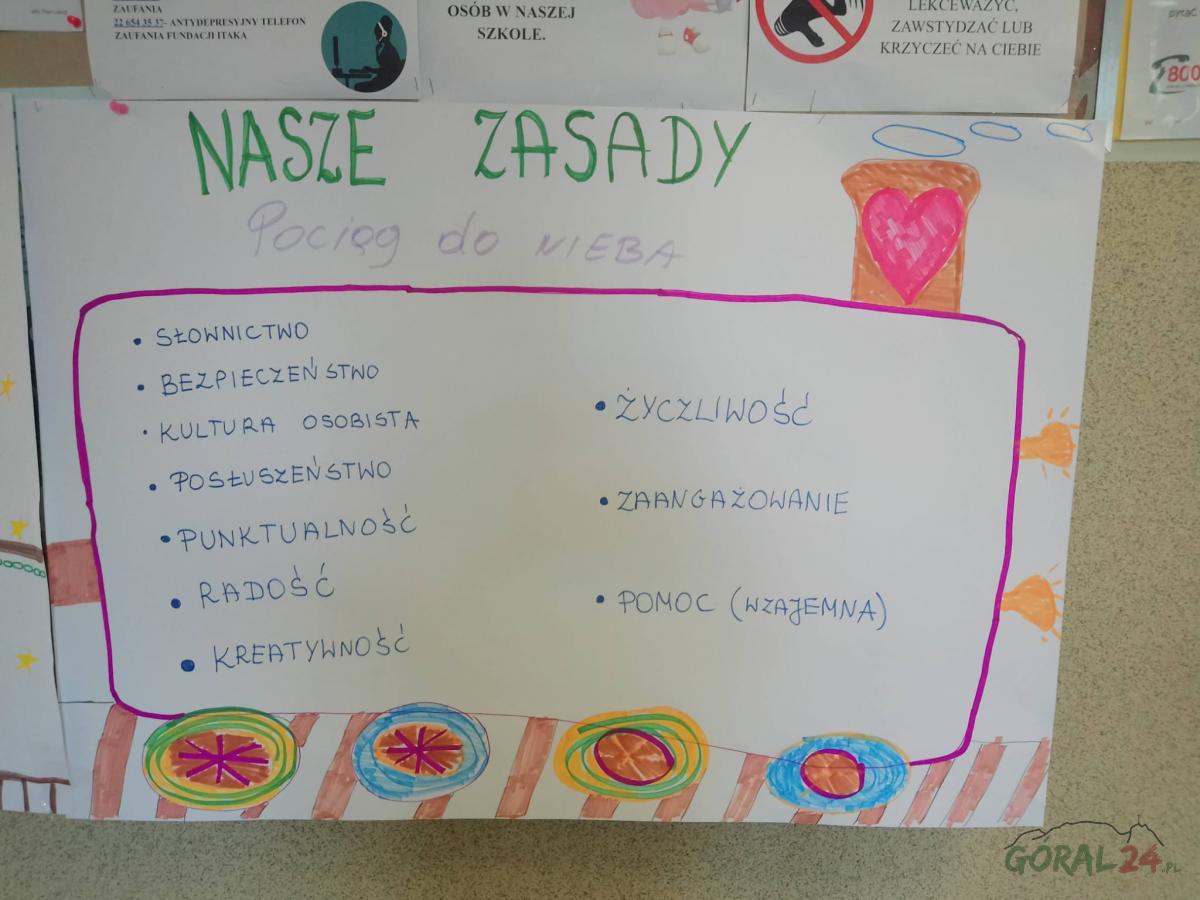 ZAUFANIA
22 654 35 37- ANTYDEPRESYJNY TELEFON
ZAUFANIA FUNDACJI ITAKA
OSÓB W NASZEJ
SZKOLE.
LEKCEWAŻYĆ,
ZAWSTYDZAĆ LUB
KRZYCZEĆ NA CIEBIE
pytać
800
NASZE ZASADY
Pociąg do NIEBA
• SŁOWNICTWO
• BEZPIECZEŃSTWO
• KULTURA OSOBISTA
• POSŁUSZEŃSTWO
• PUNKTUALNOŚĆ
• RADOŚĆ
• KREATYWNOŚĆ
• ŻYCZLIWOŚĆ
• ZAANGAŻOWANIE
• POMOC (WZAJEMNA)
GORAL24.PL